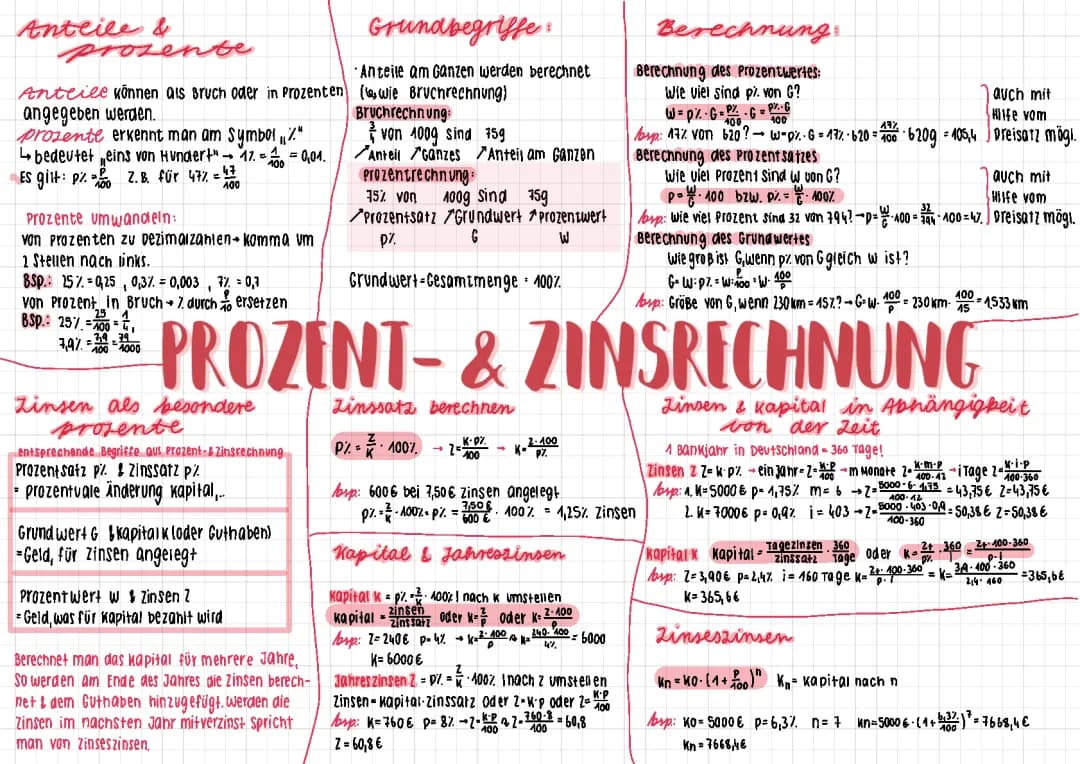 Anteile &
prozente
Anteile können als Bruch oder in Prozenten
angegeben werden.
prozente erkennt man am Symbol „%"
↳ bedeutet „eins von Hundert" → 1% = 1/100 = 0,01.
Es gilt: p% = p/100 z.B. für 47% = 47/100
Prozente umwandeln:
von Prozenten zu Dezimalzahlen → Komma um
2 Stellen nach links.
BSP.: 25% = 0,25 , 0,3% = 0,003 , 7% = 0,7
von Prozent in Bruch → % durch p/10 ersetzen
BSP.: 25% = 25/100 = 1/4,
7,9% = 7,9/100 = 79/1000
Grundbegriffe:
· Anteile am Ganzen werden berechnet
(↳ wie Bruchrechnung)
Bruchrechnung:
3/4 von 100g sind 75g
↗Anteil ↗Ganzes ↗Anteil am Ganzen
Prozentrechnung:
75% von 100g sind 75g
↗Prozentsatz ↗Grundwert ↗Prozentwert
p% G W
Grundwert = Gesamtmenge = 100%
Berechnung:
Berechnung des Prozentwertes:
Wie viel sind p% von G?
W = p% · G = p%/100 · G = p%·G/100
bsp: 17% von 620? → W = p% · G = 17% · 620 = 17%/100 · 620g = 105,4
auch mit
Hilfe vom
Dreisatz mögl.
Berechnung des Prozentsatzes
Wie viel Prozent sind W von G?
p = W/G · 100 bzw. p% = W/G · 100%
bsp: Wie viel Prozent sind 32 von 794? → p = W/G · 100 = 32/794 · 100 = 4%
auch mit
Hilfe vom
Dreisatz mögl.
Berechnung des Grundwertes
Wie groß ist G, wenn p% von G gleich W ist?
G = W : p% = W : p/100 = W · 100/p
bsp: Größe von G, wenn 230km = 15%? → G = W · 100/p = 230km · 100/15 = 1533 km
PROZENT- & ZINSRECHNUNG
Zinsen als besondere
prozente
entsprechende Begriffe aus Prozent- & Zinsrechnung
Prozentsatz p% & Zinssatz p%
= prozentuale Änderung Kapital,..
Grundwert G & Kapital K (oder Guthaben)
= Geld, für Zinsen angelegt
Prozentwert W & Zinsen Z
= Geld, was für Kapital bezahlt wird
Berechnet man das Kapital für mehrere Jahre,
so werden am Ende des Jahres die Zinsen berech-
net & dem Guthaben hinzugefügt. Werden die
Zinsen im nächsten Jahr mitverzinst spricht
man von Zinseszinsen.
Zinssatz berechnen
p% = Z/K · 100% → Z = K·p%/100 → K = Z·100/p%
bsp: 600€ bei 7,50€ Zinsen angelegt
p% = Z/K · 100% = p% = 7,50€/600€ · 100% = 1,25% Zinsen
Kapital & Jahreszinsen
Kapital K = p% = Z/K · 100% ! nach K umstellen
Kapital = Zinsen/Zinssatz oder K = Z/p oder K = Z·100/p
bsp: Z = 240€ p = 4% → K = Z·100/p → K = 240·100/4% = 6000
K = 6000€
Jahreszinsen Z = p% = Z/K · 100% ! nach Z umstellen
Zinsen = Kapital · Zinssatz oder Z = K·p oder Z = K·p/100
bsp: K = 760€ p = 8% → Z = K·p/100 → Z = 760·8/100 = 60,8
Z = 60,8€
Zinsen & Kapital in Abhängigkeit
von der Zeit
1 Bankjahr in Deutschland = 360 Tage!
Zinsen Z Z = K·p% → ein Jahr = Z = K·p/100 → m Monate Z = K·m·p/100·12 → i Tage Z = K·i·p/100·360
bsp: 1. K = 5000€ p = 1,75% m = 6 → Z = 5000·6·1,75/100·12 = 43,75€ Z = 43,75€
2. K = 7000€ p = 0,9% i = 403 → Z = 5000·403·0,9/100·360 = 50,38€ Z = 50,38€
Kapital K Kapital = Tagezinsen/Zinssatz · 360/Tage oder K = Zt/p% · 360/i = Zt·100·360/p·i
bsp: Z = 3,90€ p = 2,4% i = 160 Tage K = Zt·100·360/p·i = K = 3,9·100·360/2,4·160 = 365,6€
K = 365,6€
Zinseszinsen
Kn = K0 · (1 + p/100)ⁿ Kn = Kapital nach n
bsp: K0 = 5000€ p = 6,3% n = 7 Kn = 5000€ · (1 + 6,3%/100)⁷ = 7668,4€
Kn = 7668,4€